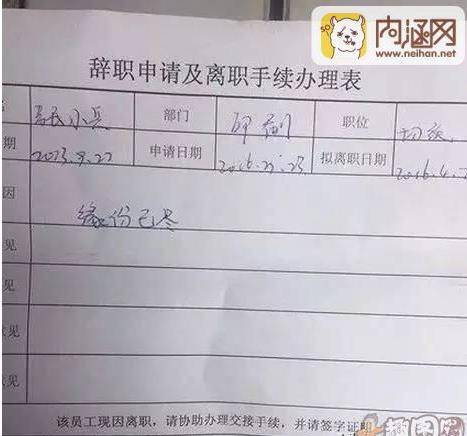 内涵网
www.neihan.net
辞职申请及离职手续办理表
小兵 部门 印刷 职位 切
期 2013.9.22 申请日期 拟离职日期 2016.4.
因 缘份已尽
见
见
见
见
该员工现因离职，请协助办理交接手续，并请签字证明